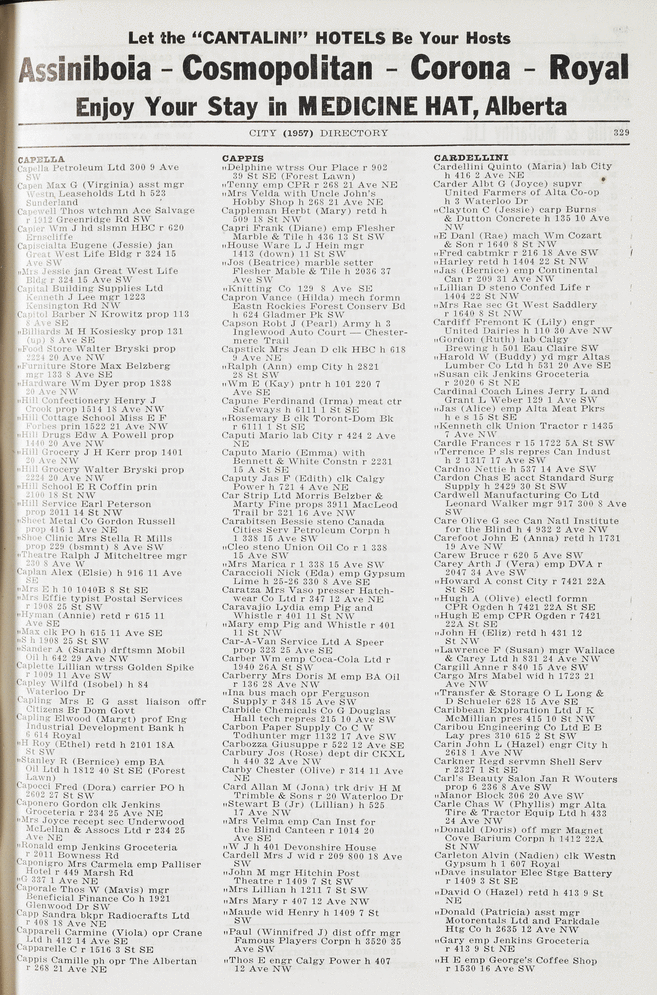 Let the "CANTALINI" HOTELS Be Your Hosts
Assiniboia - Cosmopolitan - Corona - Royal
Enjoy Your Stay in MEDICINE HAT, Alberta
CITY (1957) DIRECTORY 329
CAPELLA
Capella Petroleum Ltd 300 9 Ave
SW
Capen Max G (Virginia) asst mgr
Westn Leaseholds Ltd h 523
Sunderland
Capewell Thos wtchmn Ace Salvage
r 1912 Greenridge Rd SW
Capier Wm J hd slsmn HBC r 620
Ernscliffe
Capiscialta Eugene (Jessie) jan
Great West Life Bldg r 324 15
Ave SW
"Mrs Jessie jan Great West Life
Bldg r 324 15 Ave SW
Capital Building Supplies Ltd
Kenneth J Lee mgr 1223
Kensington Rd NW
Capitol Barber N Krowitz prop 113
8 Ave SE
"Billiards M H Kosiesky prop 131
(up) 8 Ave SE
"Food Store Walter Bryski prop
2224 20 Ave NW
"Furniture Store Max Belzberg
mgr 133 8 Ave SE
"Hardware Wm Dyer prop 1838
20 Ave NW
"Hill Confectionery Henry J
Crook prop 1514 18 Ave NW
"Hill Cottage School Miss E P
Forbes prin 1522 21 Ave NW
"Hill Drugs Edw A Powell prop
1440 20 Ave NW
"Hill Grocery J H Kerr prop 1401
20 Ave NW
"Hill Grocery Walter Bryski prop
2224 20 Ave NW
"Hill School E R Coffin prin
2100 18 St NW
"Hill Service Earl Peterson
prop 2011 14 St NW
"Sheet Metal Co Gordon Russell
prop 416 1 Ave NE
"Shoe Clinic Mrs Stella R Mills
prop 229 (bsmnt) 8 Ave SW
"Theatre Ralph J Mitcheltree mgr
230 8 Ave W
Caplan Alex (Elsie) h 916 11 Ave
SE
"Mrs E h 10 1040B 8 St SE
"Mrs Effie typist Postal Services
r 1908 25 St SW
"Hyman (Annie) retd r 615 11
Ave SE
"Max clk PO h 615 11 Ave SE
"S h 1908 25 St SW
"Sander A (Sarah) drftsmn Mobil
Oil h 642 29 Ave NW
Caplette Lillian wtrss Golden Spike
r 1009 11 Ave SW
Capley Wilfd (Isobel) h 84
Waterloo Dr
Capling Mrs E G asst liaison offr
Citizens Br Dom Govt
Capling Elwood (Margt) prof Eng
Industrial Development Bank h
6 614 Royal
"H Roy (Ethel) retd h 2101 18A
St SW
"Stanley R (Bernice) emp BA
Oil Ltd h 1812 40 St SE (Forest
Lawn)
Capocci Fred (Dora) carrier PO h
2602 27 St SW
Caponero Gordon clk Jenkins
Groceteria r 234 25 Ave NE
"Mrs Joyce recept sec Underwood
McLellan & Assocs Ltd r 234 25
Ave NE
"Ronald emp Jenkins Groceteria
r 2011 Bowness Rd
Caponigro Mrs Carmela emp Palliser
Hotel r 449 Marsh Rd
"G 337 1 Ave NE
Caporale Thos W (Mavis) mgr
Beneficial Finance Co h 1921
Glenwood Dr SW
Capp Sandra bkpr Radiocrafts Ltd
r 408 18 Ave NE
Cappareli Carmine (Viola) opr Crane
Ltd h 412 14 Ave SE
Capparelle C r 1516 3 St SE
Cappis Camille ph opr The Albertan
r 268 21 Ave NE
CAPPIS
"Delphine wtrss Our Place r 902
39 St SE (Forest Lawn)
"Tenny emp CPR r 268 21 Ave NE
"Mrs Velda with Uncle John's
Hobby Shop h 268 21 Ave NE
Cappleman Herbt (Mary) retd h
509 18 St NW
Capri Frank (Diane) emp Flesher
Marble & Tile h 436 13 St SW
"House Ware L J Hein mgr
1413 (down) 11 St SW
"Jos (Beatrice) marble setter
Flesher Mable & Tile h 2036 37
Ave SW
"Knitting Co 129 8 Ave SE
Capron Vance (Hilda) mech formn
Eastn Rockies Forest Conserv Bd
h 624 Gladmer Pk SW
Capson Robt J (Pearl) Army h 3
Inglewood Auto Court — Chester-
mere Trail
Capstick Mrs Jean D clk HBC h 618
9 Ave NE
"Ralph (Ann) emp City h 2821
28 St SW
"Wm E (Kay) pntr h 101 220 7
Ave SW
Capune Ferdinand (Irma) meat ctr
Safeways h 6111 1 St SE
"Rosemary B clk Toront-Dom Bk
r 6111 1 St SE
Caputi Mario lab City r 424 2 Ave
NE
Caputo Mario (Emma) with
Bennett & White Constn r 2231
15 A St SE
Caputy Jas F (Edith) clk Calgy
Power h 721 4 Ave NE
Car Strip Ltd Morris Belzber &
Marty Fine props 3911 MacLeod
Trail br 321 16 Ave NW
Carabitsen Bessie steno Canada
Cities Serv Petroleum Corpn h
1 338 15 Ave SW
"Cleo steno Union Oil Co r 1 338
15 Ave SW
"Mrs Marica r 1 338 15 Ave SW
Caraccioli Nick (Eda) emp Gypsum
Lime h 25-26 330 8 Ave SE
Caratza Mrs Vaso presser Hatch-
wear Co Ltd r 347 12 Ave NE
Caravajio Lydia emp Pig and
Whistle r 401 11 St NW
"Mary emp Pig and Whistle r 401
11 St NW
Car-A-Van Service Ltd A Speer
prop 323 25 Ave SE
Carber Wm emp Coca-Cola Ltd r
1940 26A St SW
Carberry Mrs Doris M emp BA Oil
r 136 28 Ave NW
"Ina bus mach opr Ferguson
Supply r 348 15 Ave SW
Carbide Chemicals Co G Douglas
Hall tech repres 215 10 Ave SW
Carbon Paper Supply Co C W
Todhunter mgr 1132 17 Ave SW
Carbozza Giusuppe r 522 12 Ave SE
Carbury Jos (Rose) dept dir CKXL
h 440 32 Ave NW
Carby Chester (Olive) r 314 11 Ave
NE
Card Allan M (Jona) trk driv H M
Trimble & Sons r 20 Waterloo Dr
"Stewart B (Jr) (Lillian) h 525
17 Ave NW
"Mrs Velma emp Can Inst for
the Blind Canteen r 1014 20
Ave SE
"W J h 401 Devonshire House
Cardell Mrs J wid r 209 800 18 Ave
SW
"John M mgr Hitchin Post
Theatre r 1409 7 St NW
"Mrs Lillian h 1211 7 St SW
"Mrs Mary r 407 12 Ave NW
"Maude wid Henry h 1409 7 St
SW
"Paul (Winnifred J) dist offr mgr
Famous Players Corpn h 3520 35
Ave SW
"Thos E engr Calgy Power h 407
12 Ave NW
CARDELLINI
Cardellini Quinto (Maria) lab City
h 416 2 Ave NE
Carder Albt G (Joyce) supvr
United Farmers of Alta Co-op
h 3 Waterloo Dr
"Clayton C (Jessie) carp Burns
& Dutton Concrete h 135 10 Ave
NW
"E Danl (Rae) mach Wm Cozart
& Son r 1640 8 St NW
"Fred cabtmkr r 216 18 Ave SW
"Harley retd h 1404 22 St NW
"Jas (Bernice) emp Continental
Can r 209 31 Ave NW
"Lillian D steno Confed Life r
1404 22 St NW
"Mrs Rae sec Gt West Saddlery
r 1640 8 St NW
Cardiff Fremont K (Lily) engr
United Dairies h 110 30 Ave NW
"Gordon (Ruth) lab Calgy
Brewing h 501 Eau Claire SW
"Harold W (Buddy) yd mgr Altas
Lumber Co Ltd h 531 20 Ave SE
"Susan clk Jenkins Groceteria
r 2020 6 St NE
Cardinal Coach Lines Jerry L and
Grant L Weber 129 1 Ave SW
"Jas (Alice) emp Alta Meat Pkrs
h e s 15 St SE
"Kenneth clk Union Tractor r 1435
7 Ave NW
Cardle Frances r 15 1722 5A St SW
"Terrence P sls repres Can Indust
h 2 1317 17 Ave SW
Cardno Nettie h 537 14 Ave SW
Cardon Chas E acct Standard Surg
Supply h 2429 30 St SW
Cardwell Manufacturing Co Ltd
Leonard Walker mgr 917 300 8 Ave
SW
Care Olive G sec Can Natl Institute
for the Blind h 4 932 2 Ave NW
Carefoot John E (Anna) retd h 1731
19 Ave NW
Carew Bruce r 620 5 Ave SW
Carey Arth J (Vera) emp DVA r
2047 34 Ave SW
"Howard A const City r 7421 22A
St SE
"Hugh A (Olive) electl formn
CPR Ogden h 7421 22A St SE
"Hugh E emp CPR Ogden r 7421
22A St SE
"John H (Eliz) retd h 431 12
St NW
"Lawrence F (Susan) mgr Wallace
& Carey Ltd h 831 24 Ave NW
Cargill Anne r 840 15 Ave SW
Cargo Mrs Mabel wid h 1723 21
Ave NW
"Transfer & Storage O L Long &
D Schueler 628 15 Ave SE
Caribbean Exploration Ltd J K
McMillian pres 415 10 St NW
Caribou Engineering Co Ltd E B
Lay pres 310 615 2 St SW
Carin John L (Hazel) engr City h
2618 1 Ave NW
Carkner Regd servmn Shell Serv
r 2327 1 St SE
Carl's Beauty Salon Jan R Wouters
prop 6 236 8 Ave SW
"Manor Block 306 20 Ave SW
Carle Chas W (Phyllis) mgr Alta
Tire & Tractor Equip Ltd h 433
24 Ave NW
"Donald (Doris) off mgr Magnet
Cove Barium Corpn h 1412 22A
St NW
Carleton Alvin (Nadien) clk Westn
Gypsum h 1 607 Royal
"Dave insulator Elec Stge Battery
r 1409 3 St SE
"David O (Hazel) retd h 413 9 St
NE
"Donald (Patricia) asst mgr
Motorentals Ltd and Parkdale
Htg Co h 2635 12 Ave NW
"Gary emp Jenkins Groceteria
r 413 9 St NE
"H E emp George's Coffee Shop
r 1530 16 Ave SW